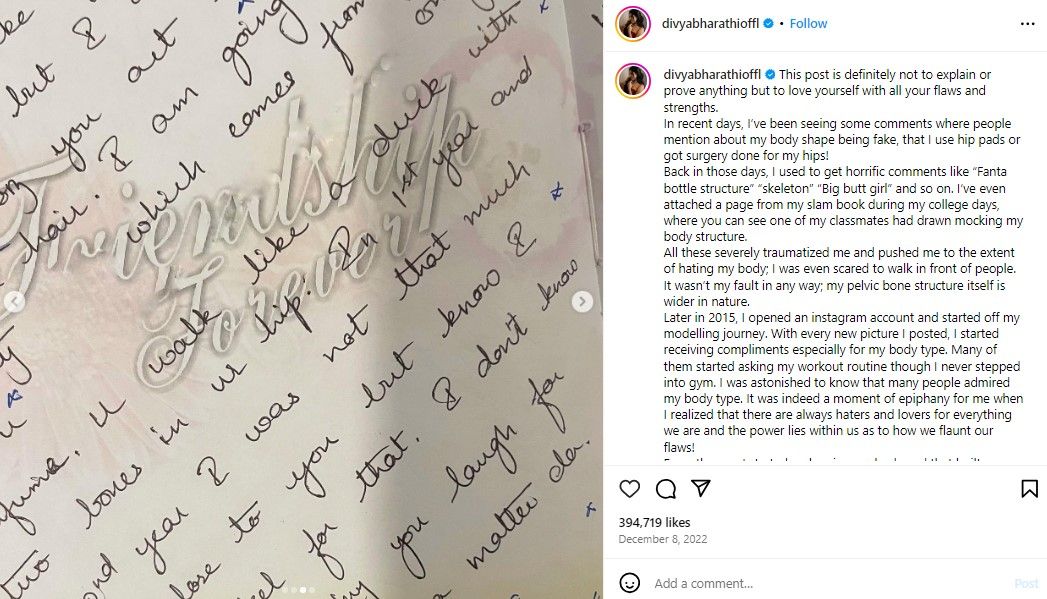 but I act going from
on you am comes with
hair. I which
Friendship
Forever
walk like a duck and
hip. In 1st year
two bones in ur not that much
and year I was but know I
close to you that. I don't know
feel for you laugh for
matter da.
divyabharathioffl • Follow
divyabharathioffl This post is definitely not to explain or
prove anything but to love yourself with all your flaws and
strengths.
In recent days, I've been seeing some comments where people
mention about my body shape being fake, that I use hip pads or
got surgery done for my hips!
Back in those days, I used to get horrific comments like “Fanta
bottle structure” “skeleton” “Big butt girl” and so on. I've even
attached a page from my slam book during my college days,
where you can see one of my classmates had drawn mocking my
body structure.
All these severely traumatized me and pushed me to the extent
of hating my body; I was even scared to walk in front of people.
It wasn't my fault in any way; my pelvic bone structure itself is
wider in nature.
Later in 2015, I opened an instagram account and started off my
modelling journey. With every new picture I posted, I started
receiving compliments especially for my body type. Many of
them started asking my workout routine though I never stepped
into gym. I was astonished to know that many people admired
my body type. It was indeed a moment of epiphany for me when
I realized that there are always haters and lovers for everything
we are and the power lies within us as to how we flaunt our
flaws!
394,719 likes
December 8, 2022
Add a comment...
Post